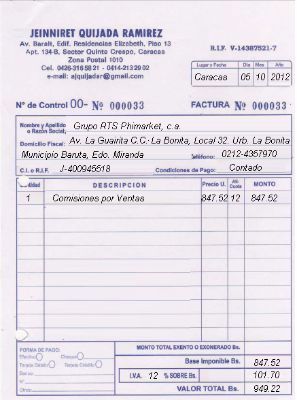 JEINNIRET QUIJADA RAMIREZ
Av. Baralt, Edif. Residencias Elizabeth, Piso 13
Apt. 134-B, Sector Quinta Crespo, Caracas
Zona Postal 1010
Cel. 0426-316 58 21 - 0414-213 29 02
e-mail: ajquijadar@gmail.com
R.I.F. V-14387521-7
Lugar o Fecha Día Mes Año
Caracas 05 10 2012
N° de Control 00- Nº 000033 FACTURA Nº 000033
Nombre y Apellido
o Razón Social: Grupo RTS Phimarket, c.a.
Domicilio Fiscal: Av. La Guairita C.C. La Bonita, Local 32. Urb. La Bonita
Municipio Baruta, Edo. Miranda Teléfono: 0212-4357970
C.I. o R.I.F. J-400945518 Condiciones de Pago: Contado
Cantidad DESCRIPCION Precio U. Alí Cuota MONTO
1 Comisiones por Ventas 847.52 12 847.52
MONTO TOTAL EXENTO O EXONERADO Bs.
FORMA DE PAGO:
Efectivo Cheque
Tarjeta Débito Tarjeta Crédito
Base Imponible Bs. 847.52
I.V.A. 12 % SOBRE Bs. 101.70
VALOR TOTAL Bs. 949.22